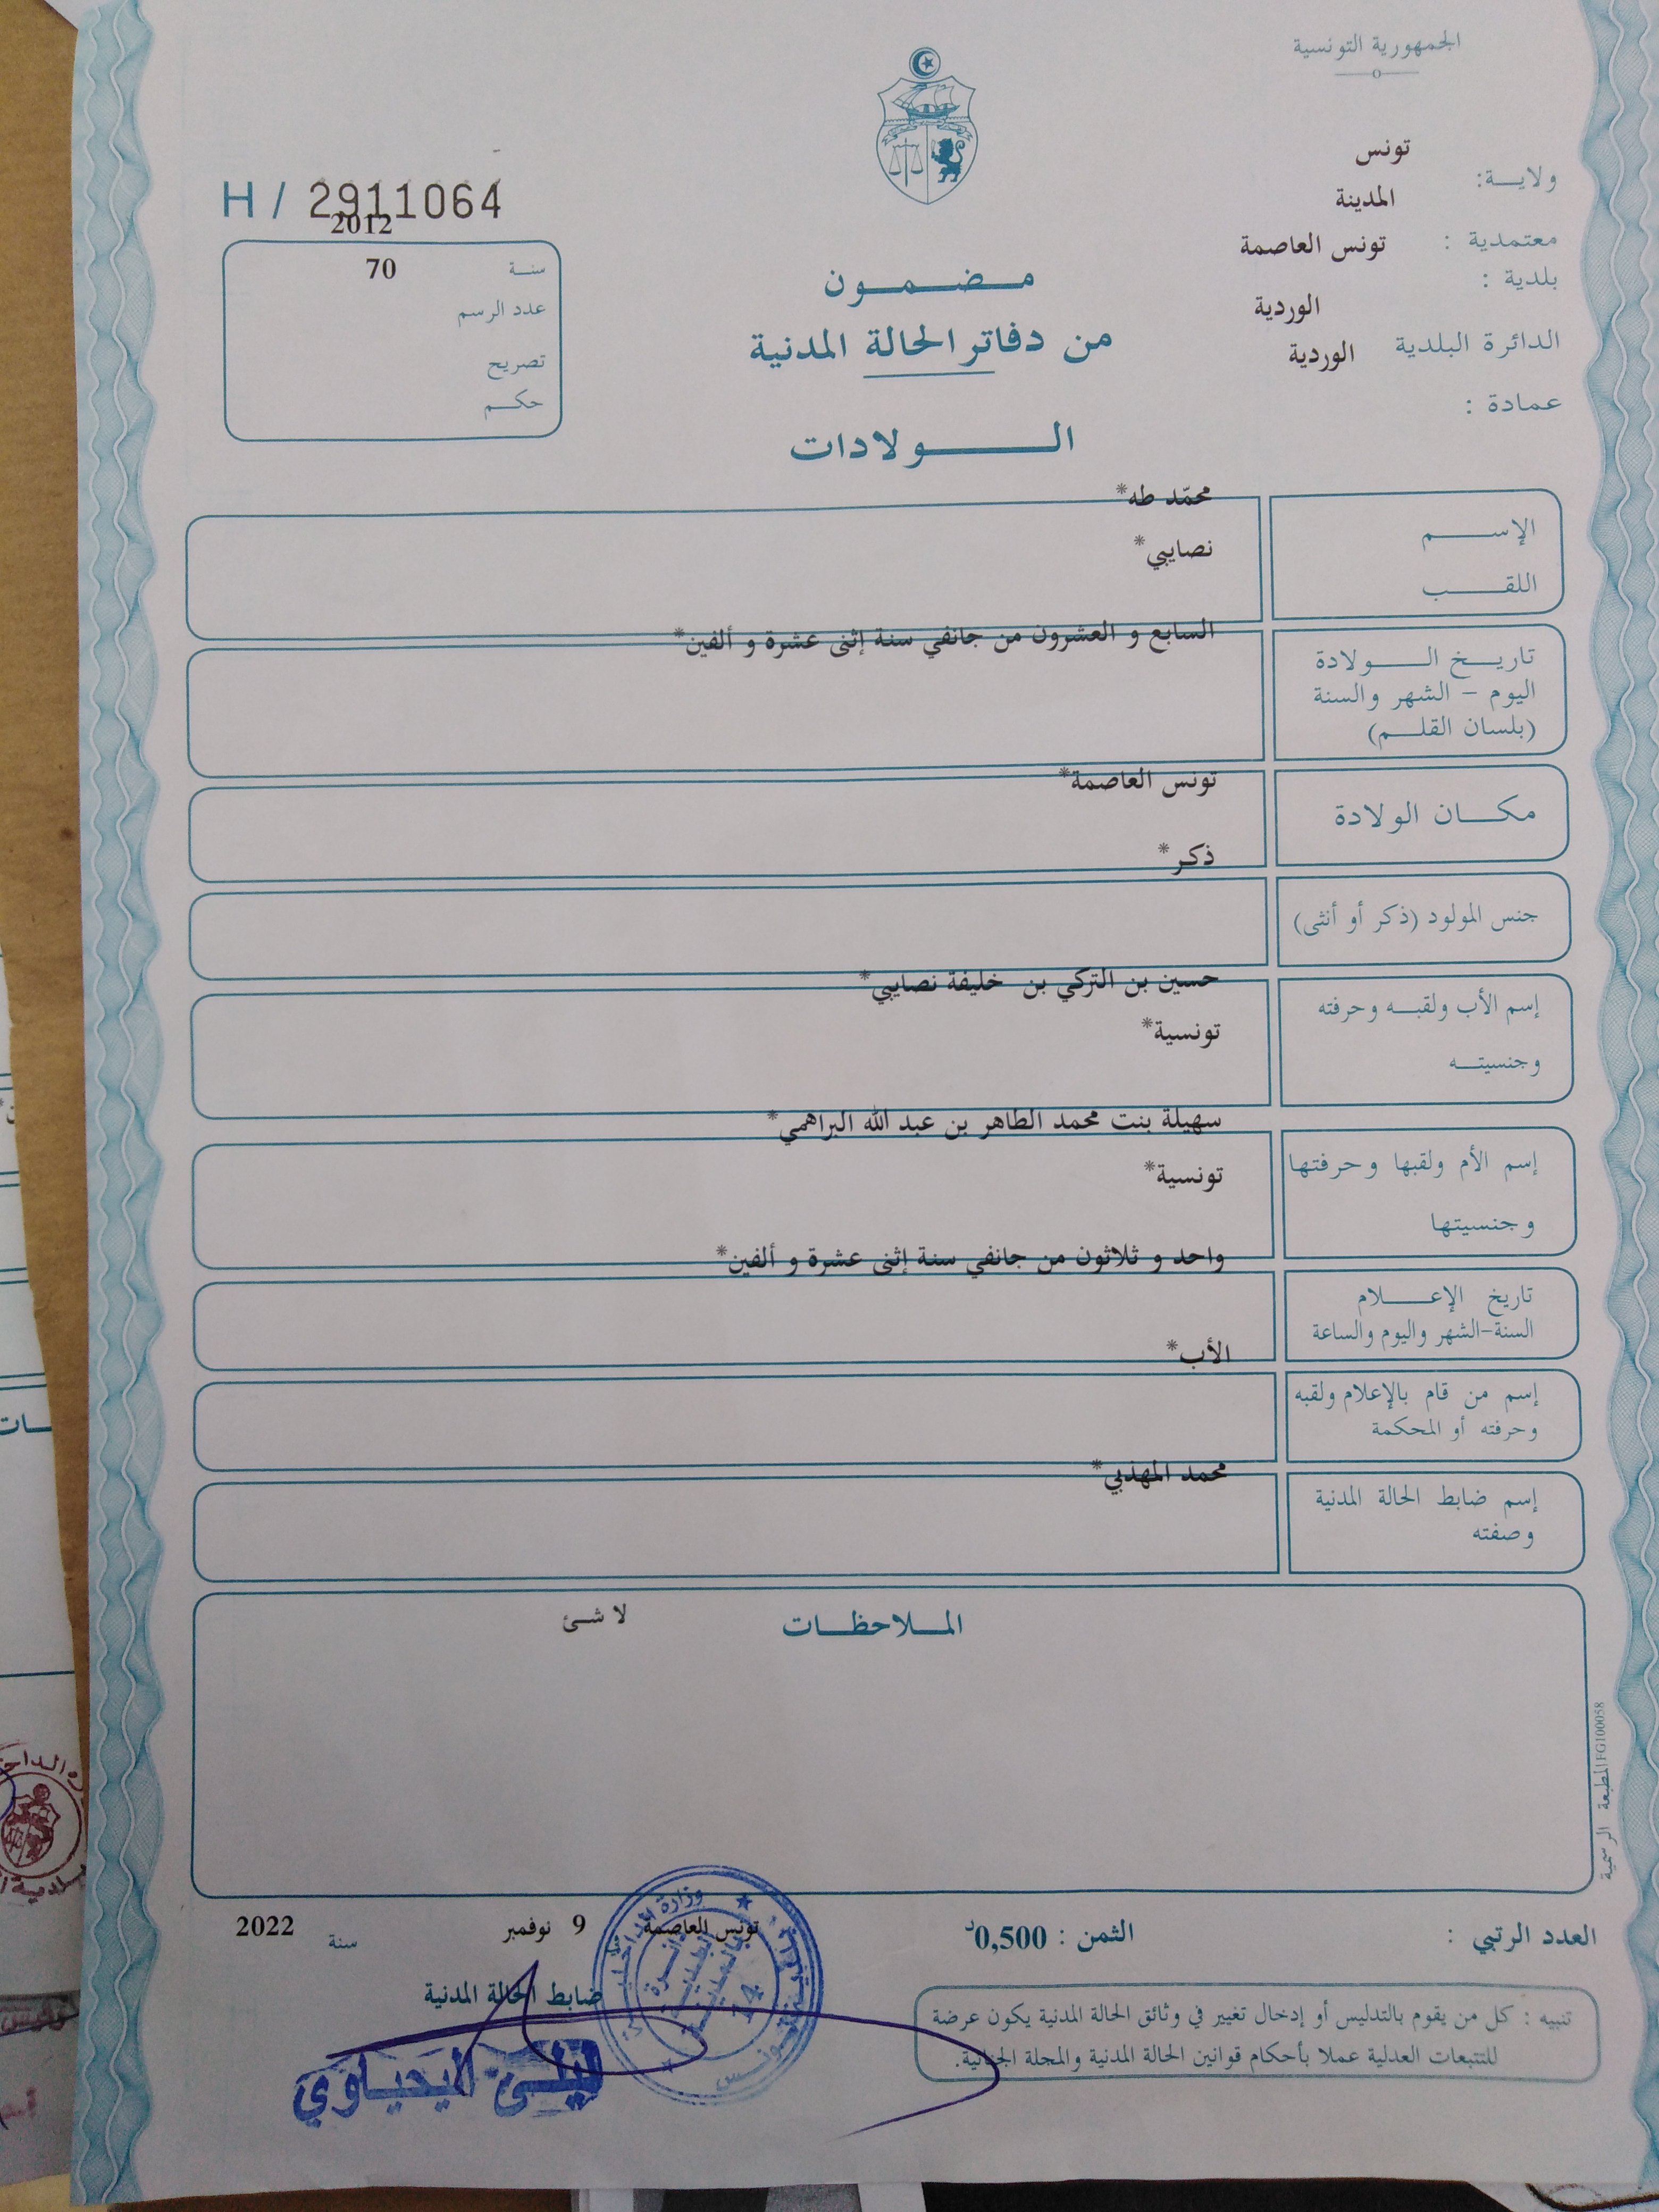 الجمهورية التونسية
ولايــة: تونس
المدينة
معتمدية : تونس العاصمة
بلدية :
الوردية
الدائرة البلدية الوردية
عمادة :
H / 2911064
2012
سنة 70
عدد الرسم
تصريح
حكم
مضمون
من دفاتر الحالة المدنية
الولادات
محمّد طه*
الإسم
نصايبي*
اللقب
السابع و العشرون من جانفي سنة إثنى عشرة و ألفين*
تاريخ الولادة
اليوم - الشهر والسنة
(بلسان القلم)
تونس العاصمة*
مكان الولادة
ذكر*
جنس المولود (ذكر أو أنثى)
حسين بن التركي بن خليفة نصايبي*
إسم الأب ولقبه وحرفته
تونسية*
وجنسيته
سهيلة بنت محمد الطاهر بن عبد الله البراهمي*
إسم الأم ولقبها وحرفتها
تونسية*
وجنسيتها
واحد و ثلاثون من جانفي سنة إثنى عشرة و ألفين*
تاريخ الإعلام
السنة-الشهر واليوم والساعة
الأب*
إسم من قام بالإعلام ولقبه
وحرفته أو المحكمة
محمد المهذبي*
إسم ضابط الحالة المدنية
وصفته
الملاحظات لا شئ
المطبعة الرسمية FG100058
العدد الرتبي :
الثمن : 0,500د
تونس العاصمة 9 نوفمبر سنة 2022
ضابط الحالة المدنية
ليلى اليحياوي
تنبيه : كل من يقوم بالتدليس أو إدخال تغيير في وثائق الحالة المدنية يكون عرضة
للتتبعات العدلية عملا بأحكام قوانين الحالة المدنية والمجلة الجنائية.